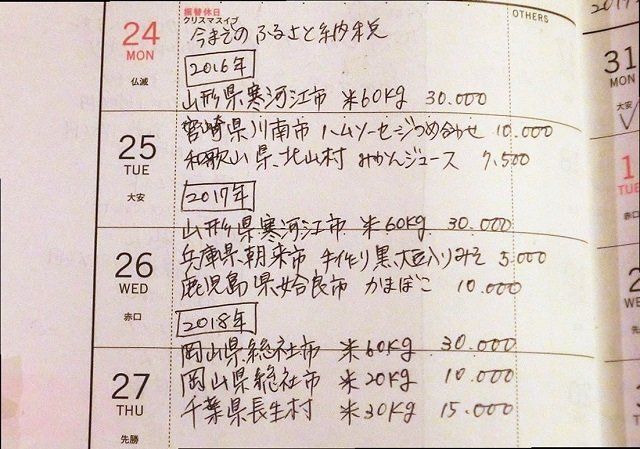 振替休日
クリスマスイブ
OTHERS
24
MON
仏滅
今までのふるさと納税
2016年
山形県寒河江市 米60kg 30.000
宮崎県川南市 ハムソーセージつめ合わせ 10.000
25
TUE
大安
和歌山県.北山村 みかんジュース 7.500
2017年
山形県寒河江市 米60kg 30.000
26
WED
赤口
兵庫県.朝来市 手作り黒大豆入りみそ 5.000
鹿児島県姶良市 かまぼこ 10.000
2018年
岡山県総社市 米60kg 30.000
27
THU
先勝
岡山県総社市 米20kg 10.000
千葉県長生村 米30kg 15.000
31
MON
大安
1
TUE
赤口